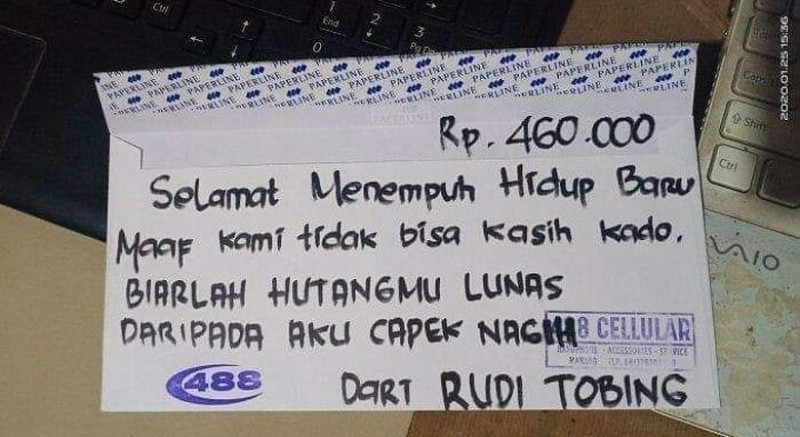 PAPERLINE PAPERLINE PAPERLINE PAPERLINE PAPERLINE PAPERLINE
Rp. 460.000
Selamat Menempuh Hidup Baru
Maaf kami tidak bisa kasih kado.
BIARLAH HUTANGMU LUNAS
DARIPADA AKU CAPEK NAGIH
8 CELLULAR
ACCESSORIES
488
DARI RUDI TOBING
Ctrl
1
End
2
3
0
Shift
Ctrl
VAIO
2020.01.25 15:36